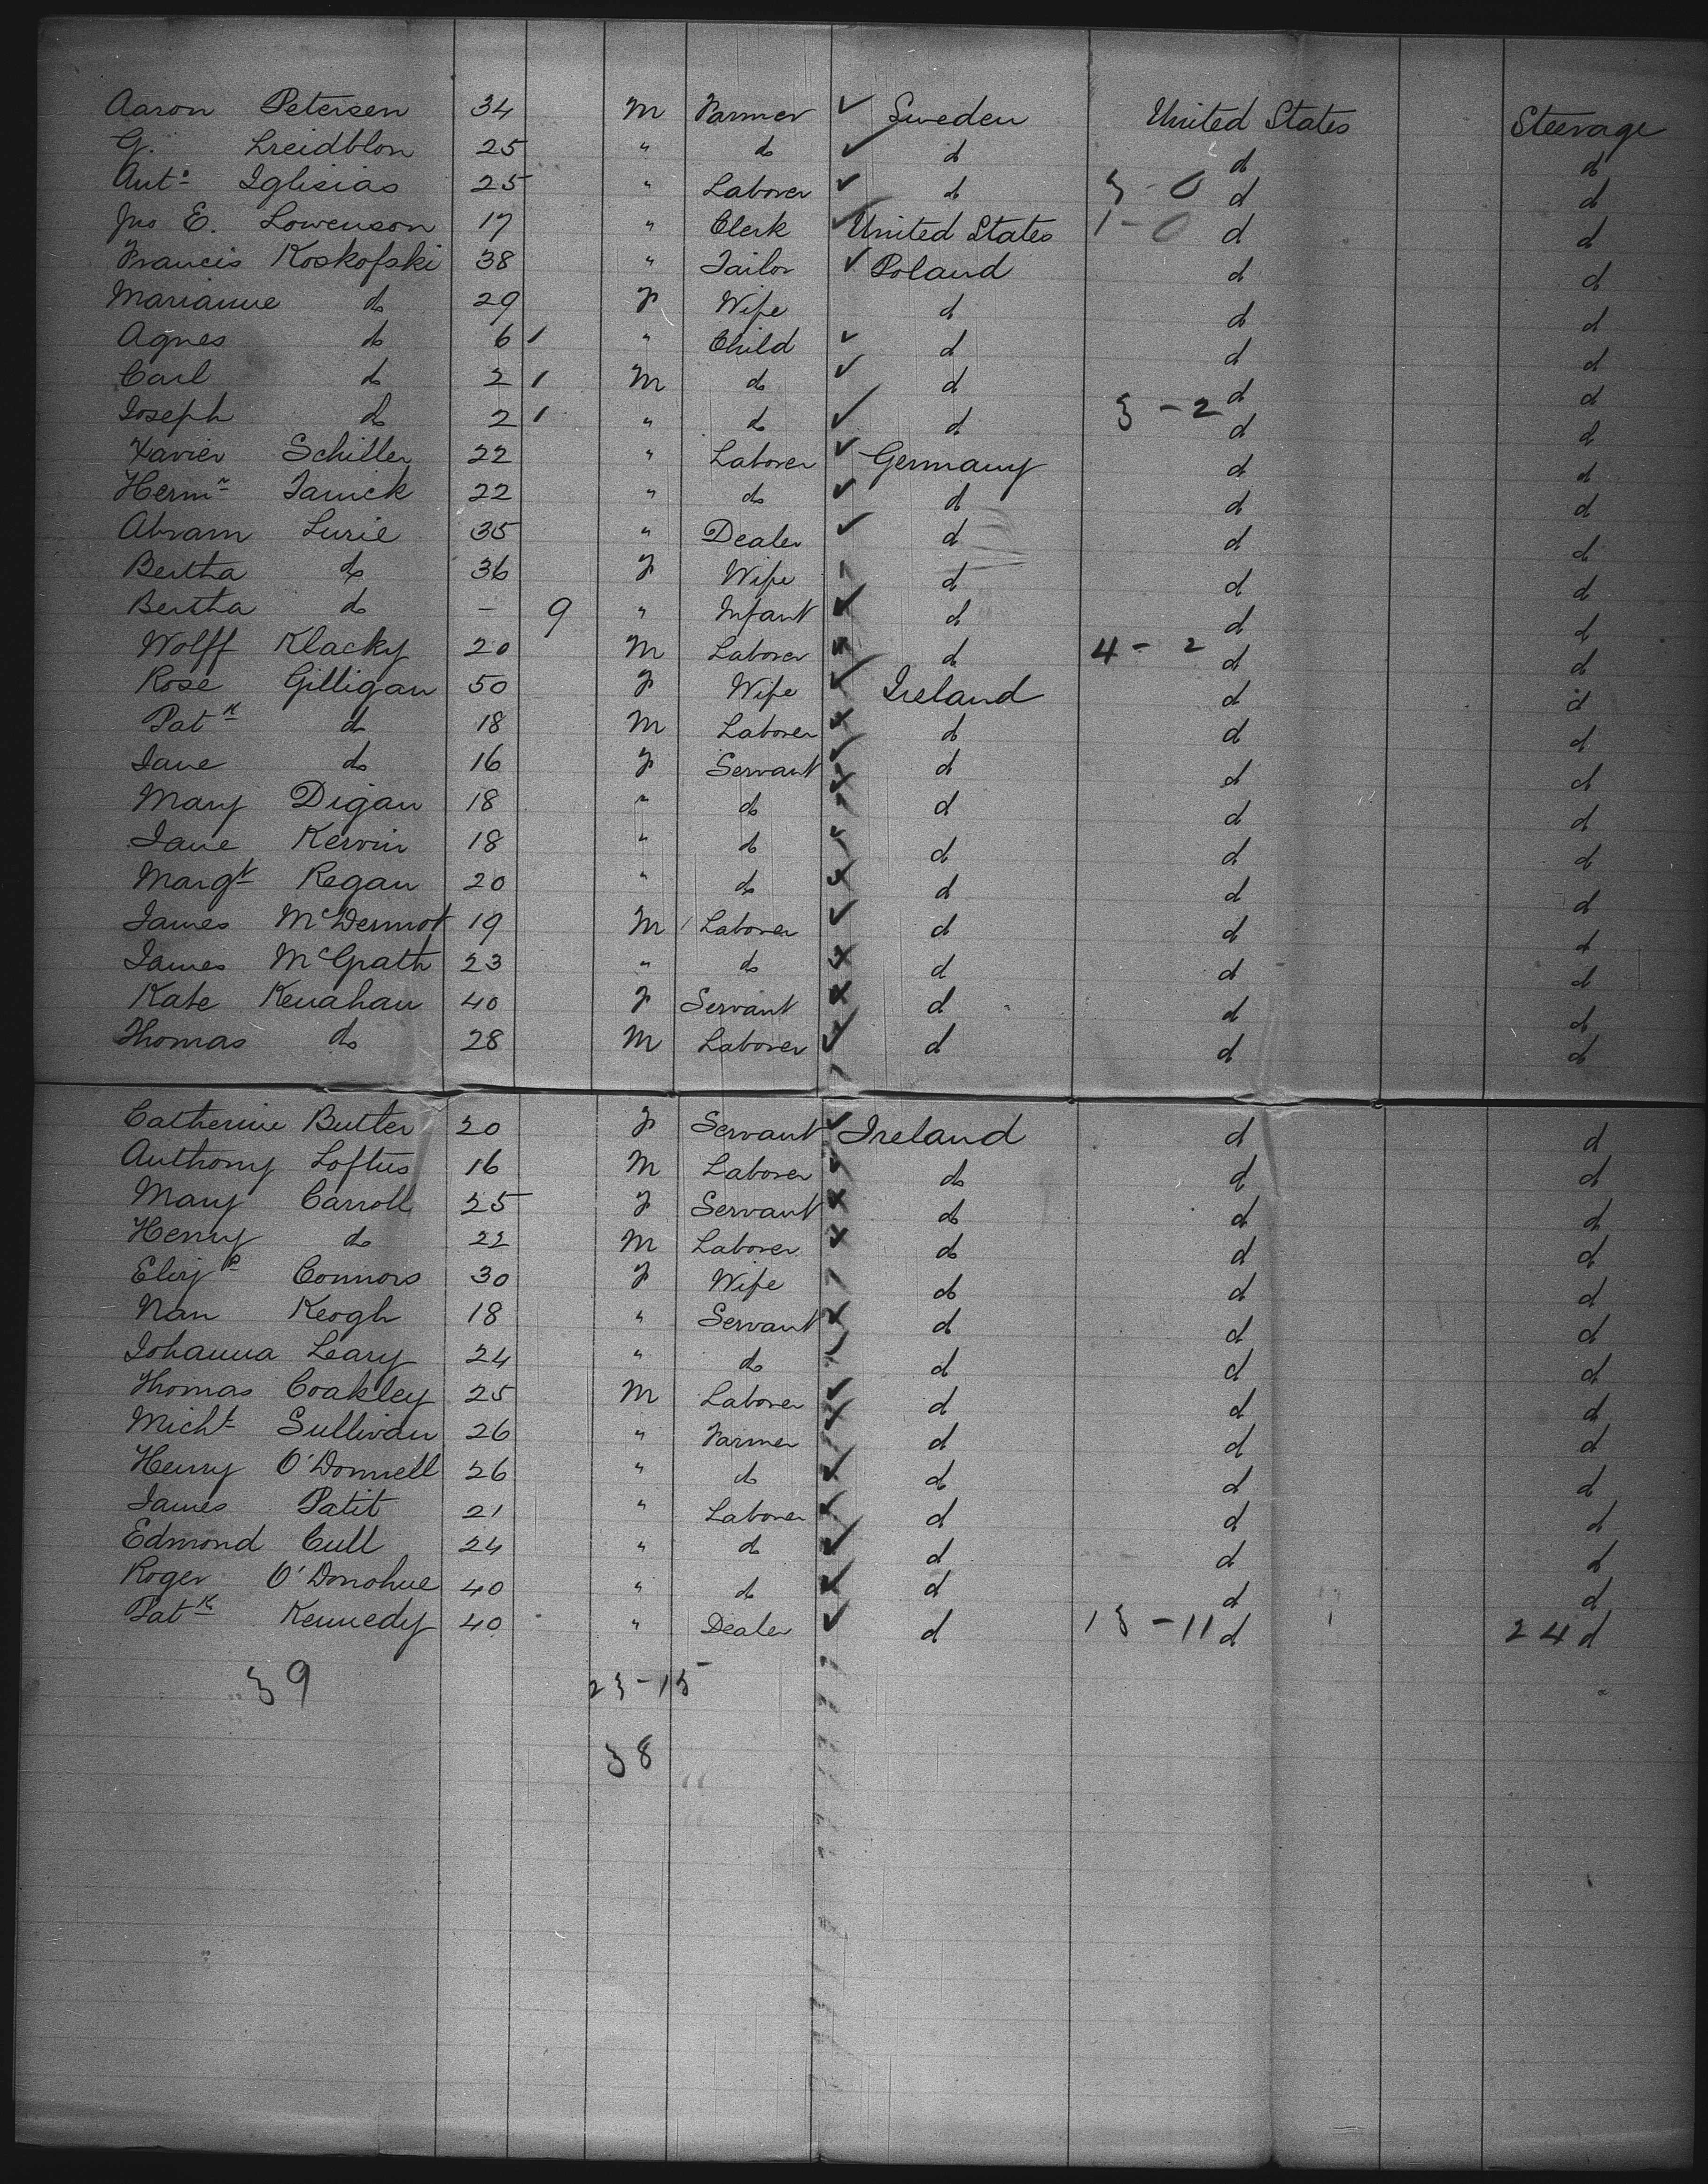 Aaron Petersen 34 M Farmer ✓ Sweden United States Steerage
G. Lreidblon 25 " do ✓ d d d
Anto Iglisias 25 " Laborer ✓ d 3 - 0 d d
Jno E. Lowenson 17 " Clerk ✓ United States 1 - 0 d d
Francis Koskofski 38 " Tailor ✓ Poland d d
Marianne do 29 F Wife d d d
Agnes do 6 1 " Child ✓ d d d
Carl do 2 1 M do ✓ d d d
Joseph do 2 1 " do ✓ d 3 - 2 d d
Xavier Schiller 22 " Laborer ✓ Germany d d
Hermn Janick 22 " do ✓ d d d
Abram Lurie 35 " Dealer ✓ d d d
Bertha do 36 F Wife d d d
Bertha do - 9 " Infant ✓ d d d
Wolff Klacky 20 M Laborer d 4 - 2 d d
Rose Gilligan 50 F Wife ✓ Ireland d d
Patk do 18 M Laborer x d d d
Jane do 16 F Servant ✓ d d d
Mary Digan 18 " do d d d
Jane Kervin 18 " do ✓ d d d
Margt Regan 20 " do x d d d
James McDermot 19 M Laborer ✓ d d d
James McGrath 23 " do x d d d
Kate Kenahan 40 F Servant x d d d
Thomas do 28 M Laborer ✓ d d d
Catherine Butler 20 F Servant ✓ Ireland d d
Anthony Loftus 16 M Laborer ✓ do d d
Mary Carroll 25 F Servant x do d d
Henry do 22 M Laborer x do d d
Elizh Connors 30 F Wife do d d
Nan Keogh 18 " Servant x d d d
Johanna Leary 24 " do d d d
Thomas Coakley 25 M Laborer ✓ d d d
Michl Sullivan 26 " Farmer d d d
Henry O'Donnell 26 " do ✓ d d d
James Patit 21 " Laborer d d d
Edmond Cull 24 " do ✓ d d d
Roger O'Donohue 40 " do ✓ d d d
Patk Kennedy 40 " Dealer ✓ d 13 - 11 d 24 d
39 23 - 15
38